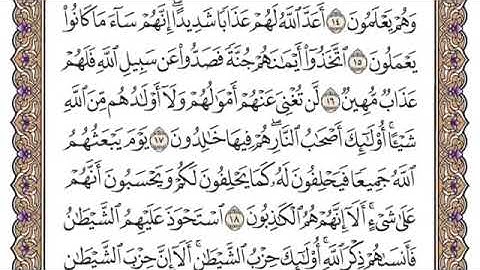 وَهُمْ يَعْلَمُونَ ١٤ أَعَدَّ ٱللَّهُ لَهُمْ عَذَابًا شَدِيدًاۖ إِنَّهُمْ سَآءَ مَا كَانُوا۟
يَعْمَلُونَ ١٥ ٱتَّخَذُوٓا۟ أَيْمَٰنَهُمْ جُنَّةً فَصَدُّوا۟ عَن سَبِيلِ ٱللَّهِ فَلَهُمْ
عَذَابٌ مُّهِينٌ ١٦ لَّن تُغْنِىَ عَنْهُمْ أَمْوَٰلُهُمْ وَلَآ أَوْلَٰدُهُم مِّنَ ٱللَّهِ
شَيْـًٔاۚ أُو۟لَٰٓئِكَ أَصْحَٰبُ ٱلنَّارِۖ هُمْ فِيهَا خَٰلِدُونَ ١٧ يَوْمَ يَبْعَثُهُمُ
ٱللَّهُ جَمِيعًا فَيَحْلِفُونَ لَهُۥ كَمَا يَحْلِفُونَ لَكُمْۖ وَيَحْسَبُونَ أَنَّهُمْ
عَلَىٰ شَىْءٍۚ أَلَآ إِنَّهُمْ هُمُ ٱلْكَٰذِبُونَ ١٨ ٱسْتَحْوَذَ عَلَيْهِمُ ٱلشَّيْطَٰنُ
فَأَنسَىٰهُمْ ذِكْرَ ٱللَّهِۚ أُو۟لَٰٓئِكَ حِزْبُ ٱلشَّيْطَٰنِۚ أَلَآ إِنَّ حِزْبَ ٱلشَّيْطَٰنِ